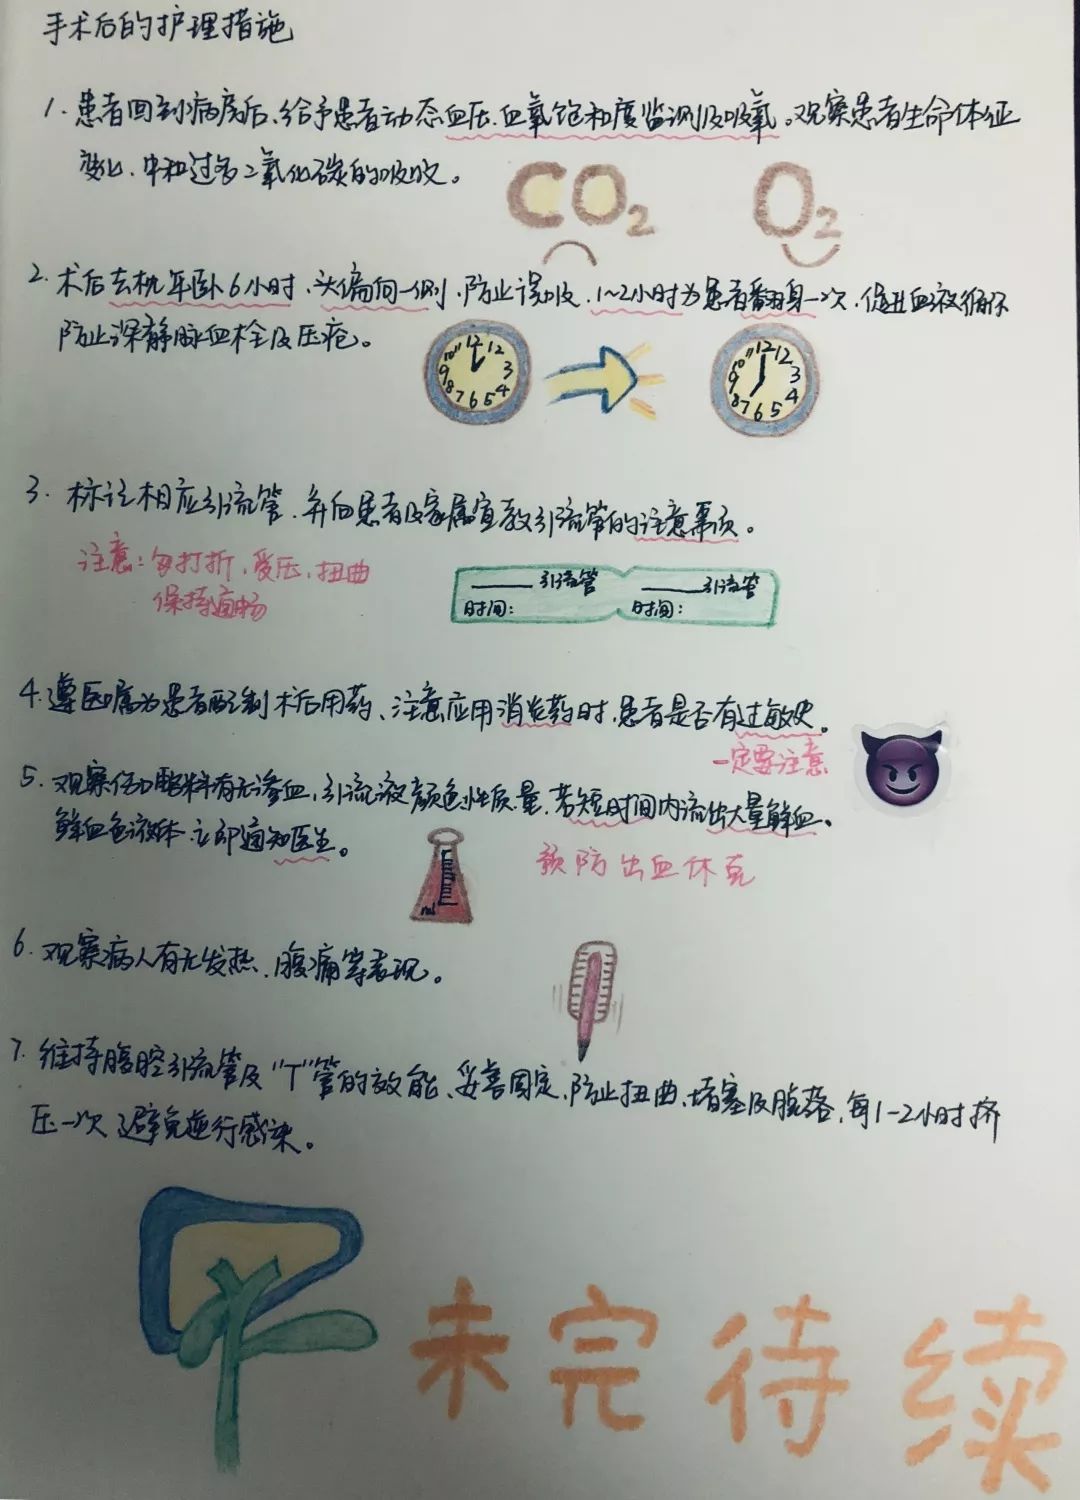 手术后的护理措施
1. 患者回到病房后、给予患者动态血压、血氧饱和度监测及吸氧。观察患者生命体征
变化、中和过多二氧化碳的吸收。
CO2
O2
2. 术后去枕平卧6小时、头偏向一侧、防止误吸、1~2小时为患者翻身一次、促进血液循环
防止深静脉血栓及压疮。
10 11 12 12 3 4 5 6 7 8 9
10 11 12 12 3 4 5 6 7 8 9
3. 标注相应引流管、并向患者及家属宣教引流管的注意事项。
注意：勿打折、受压、扭曲
保持通畅
引流管 引流管
时间： 时间：
4. 遵医嘱为患者配制术后用药、注意应用消炎药时、患者是否有过敏史。
一定要注意
5. 观察伤口敷料有无渗血、引流液颜色性质量、若短时间内流出大量鲜血。
鲜血色液体、立即通知医生。
预防出血休克
ml
6. 观察病人有无发热、腹痛等表现。
7. 维持腹腔引流管及“T”管的效能、妥善固定、防止扭曲、堵塞及脱落、每1-2小时挤
压一次、避免逆行感染。
未完待续